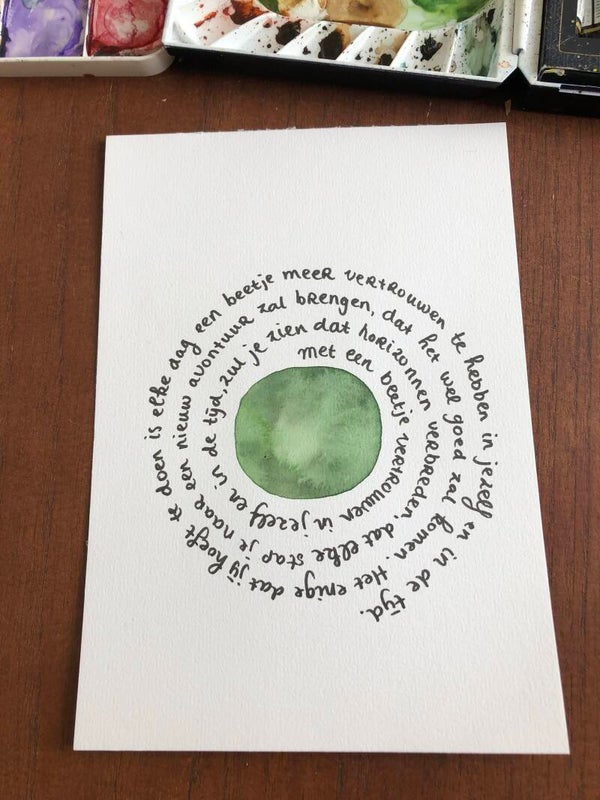 met een beetje vertrouwen in jezelf en in de tijd, zul je zien dat horizonnen verbreeden. dat elke stap je naar een nieuw avontuur zal brengen, dat het wel goed zal komen. Het enige dat jij hoeft te doen is elke dag een beetje meer vertrouwen te hebben in jezelf en in de tijd.